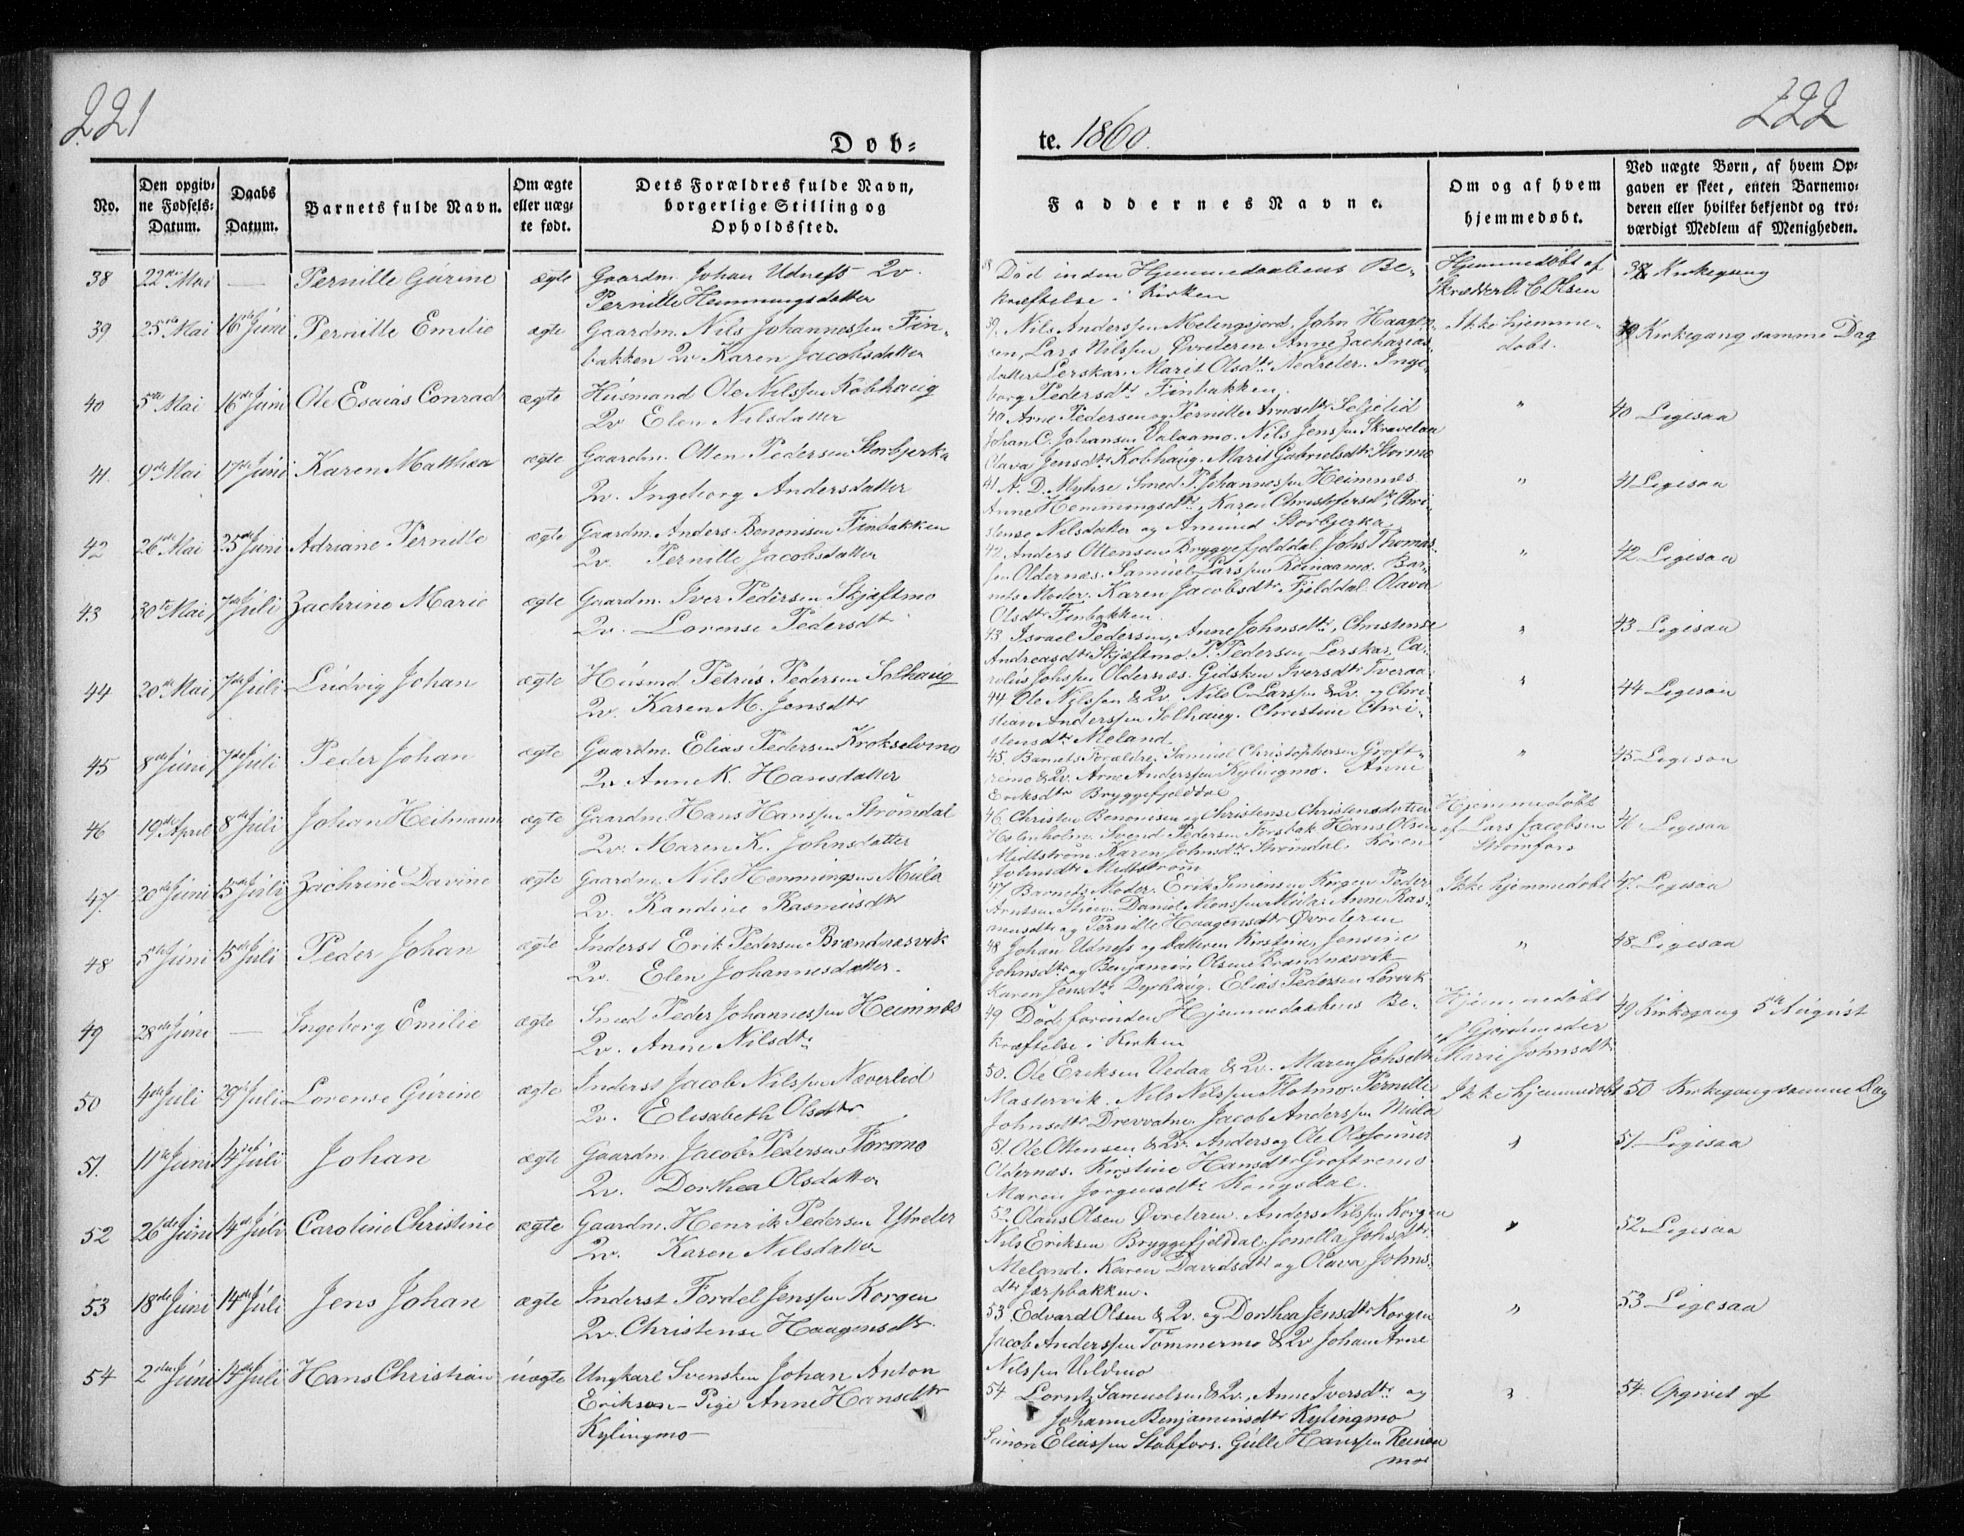 221
222
Døb=
te. 1860.
No.
Den opgiv=
ne Fødsels=
Datum.
Daabs
Datum.
Barnets fulde Navn.
Om ægte
eller uæg=
te født.
Dets Forældres fulde Navn,
borgerlige Stilling og
Opholdssted.
Faddernes Navne.
Om og af hvem
hjemmedøbt.
Ved uægte Børn, af hvem Op=
gaven er skeet, enten Barnemo=
deren eller hvilket bekjendt og tro=
værdigt Medlem af Menigheden.
38 22de Mai — Pernille Gurine ægte Gaardm. Johan Udnefs Qv.
Pernille Hemmingsdatter
38 Død inden Hjemmedaabens Be-
kræftelse i Kirken
Hjemmedøbt af
Skrædder O. C. Olsen
38 Kirkegang
39 25de Mai 16de Juni Pernille Emilie ægte Gaardm. Nils Johannessen Fin-
bakken Qv Karen Jacobsdatter
39. Nils Anderssen Melingsjord, John Haagen-
sen, Lars Nilssen Øvreleren Anne Zacharias-
datter Lerskar. Marit Olsdtr Nedreler. Inge-
borg Pedersdtr Finbakken.
Ikke hjemme-
døbt.
39 Kirkegang samme Dag
40 5te Mai 16de Juni Ole Esaias Conrad ægte Husmand Ole Nilssen Kobhaug
Qv Elen Nilsdatter
40 Arne Pedersen og Pernille Arnesdtr
Johan C. Johansen Valaamo. Nils Jenssen
Olava Jensdtr Kobhaug. Marit Gabrielsdtr Stormo
"
40 Ligesaa
41. 9de Mai 17de Juni Karen Matthea ægte Gaardm. Otten Pedersen Storbjerka
Qv. Ingeborg Andersdatter
41 A. D. Myhre Smed P. Johannessen Heimnæs.
Anne Hemmingsdtr, Karen Christofersdtr, Chri-
stense Nilsdatter og Amund Storbjerka
"
41 Ligesaa
42 26de Mai 25de Juni Adriane Pernille ægte Gaardm. Anders Benonisen Finbakken
Qv. Pernille Jacobsdatter
42. Anders Ottensen Bryggefjelddal, Johs Thomas-
sen Oldernæs. Samuel Larssen Reinaamo. Bar-
nets Moder. Karen Jacobsdtr Fjelddal. Olava
Olsdtr Finbakken.
"
42 Ligesaa
43 30te Mai 7de Juli Zachrine Marie ægte Gaardm. Iver Pedersen Skjæftmo
Qv. Lorense Pedersdt
43 Israel Pedersen, Anne Johnsdtr, Christense
Andreasdtr Skjæftmo. P. Pedersen Lerskar, Ca-
rolius Johssen Oldernæs. Gidsken Iversdtr Tveraa
"
43 Ligesaa
44 20de Mai 7de Juli Ludvig Johan ægte Husmd Petrus Pedersen Solhaug
Qv. Karen M. Jensdtr
44 Ole Nilssen & Qv. Nils C. Larssen & Qv. og Chri-
stian Anderssen Solhaug. Christine Chri-
stensdtr Meland
"
44 Ligesaa
45 8de Juni 7de Juli Peder Johan ægte Gaardm. Elias Pedersen Krokselvmo
Qv Anne K. Hansdatter
45. Barnets Forældre. Samuel Christophersen Groft-
remo & Qv. Arne Anderssen Kylingmo. Anne
Eriksdtr Bryggefjelddal
"
45 Ligesaa
46 19de April 8de Juli Johan Heitmann ægte Gaardm. Hans Hanssen Strømdal
Qv. Maren K. Johnsdatter
46 Christen Benonisen og Christense Christensdatter
Holmholm. Svend Pedersen Forsbak Hans Olsen
Midtstrøm. Karen Johnsdtr Strømdal. Karen
Johnsdtr Midtstrøm
Hjemmedøbt
af Lars Jacobsen
Strømfors
46 Ligesaa
47. 20de Juni 15de Juli Zachrine Davine ægte Gaardm. Nils Hemmingsen Mula
Qv. Randine Rasmusdtr
47 Barnets Moder. Erik Simensen Korgen Peder
Arntsen Stien. Daniel Monssen Mula. Anne Ras-
musdtr og Pernille Haagensdtr Øvreleren
Ikke hjemmedøbt
47. Ligesaa
48 5te Juni 15de Juli Peder Johan ægte Inderst Erik Pedersen Brændnæsvik
Qv. Elen Johannesdatter.
48 Johan Udnefs og Datteren Kirstine, Jensine
Johnsdtr og Benjamin Olsen Brændnæsvik
Karen Jensdtr Dyrhaug. Elias Pedersen Lervik
"
48 Ligesaa
49 28de Juni — Ingeborg Emilie ægte Smed Peder Johannessen Heimnæs
Qv. Anne Nilsdtr
49 Død forinden Hjemmedaabens Be-
kræftelse i Kirken
Hjemmedøbt
af Gjordemoder
Marie Johnsdtr
49 Kirkegang 5te August
50 4de Juli 29de Juli Lorense Gurine ægte Inderst Jacob Nilssen Næverlid
Qv. Elisabeth Olsdtr
50. Ole Eriksen Vedaa & Qv. Maren Johsdtr
Mastervik. Nils Nilssen Flotmo. Pernille
Johnsdtr Drevvatne. Jacob Anderssen Mula
Ikke hjemmedøbt
50 Kirkegang samme Dag
51. 11te Juni 14de Juli Johan ægte Gaardm. Jacob Pedersen Forsmo
Qv. Dorthea Olsdatter
51. Ole Ottensen & Qv. Anders og Ole Olssønner
Oldernæs. Kirstine Hansdtr Groftremo
Maren Jørgensdtr Kongsdal.
"
51. Ligesaa
52 26de Juni 14de Juli Caroline Christine ægte Gaardm. Henrik Pedersen Utreler
Qv. Karen Nilsdatter
52 Olaus Olsen Øvreleren. Anders Nilssen Korgen
Nils Eriksen Bryggefjelddal. Jonella Johsdtr
Meland. Karen Davidsdtr og Olava Johns-
dtr Jærpbakken.
"
52 Ligesaa
53 18de Juni 14de Juli Jens Johan ægte Inderst Fordel Jenssen Korgen
Qv. Christense Haagensdtr.
53. Edvard Olsen & Qv. og Dorthea Jensdtr Korgen
Jacob Anderssen Tømmermo & Qv Johan Arne
Nilssen Veldmo
"
53 Ligesaa
54 2den Juni 14de Juli Hans Christian uægte Ungkarl Svensken Johan Anton
Eriksen – Pige Anne Hansdtr
Kylingmo –
54 Lorntz Samuelsen & Qv, Anne Iversdtr og
Johanne Benjaminsdtr Kylingmo
Simon Eliassen Stabfors. Gulle Hanssen Reinaa
moe
"
54. Opgivet af